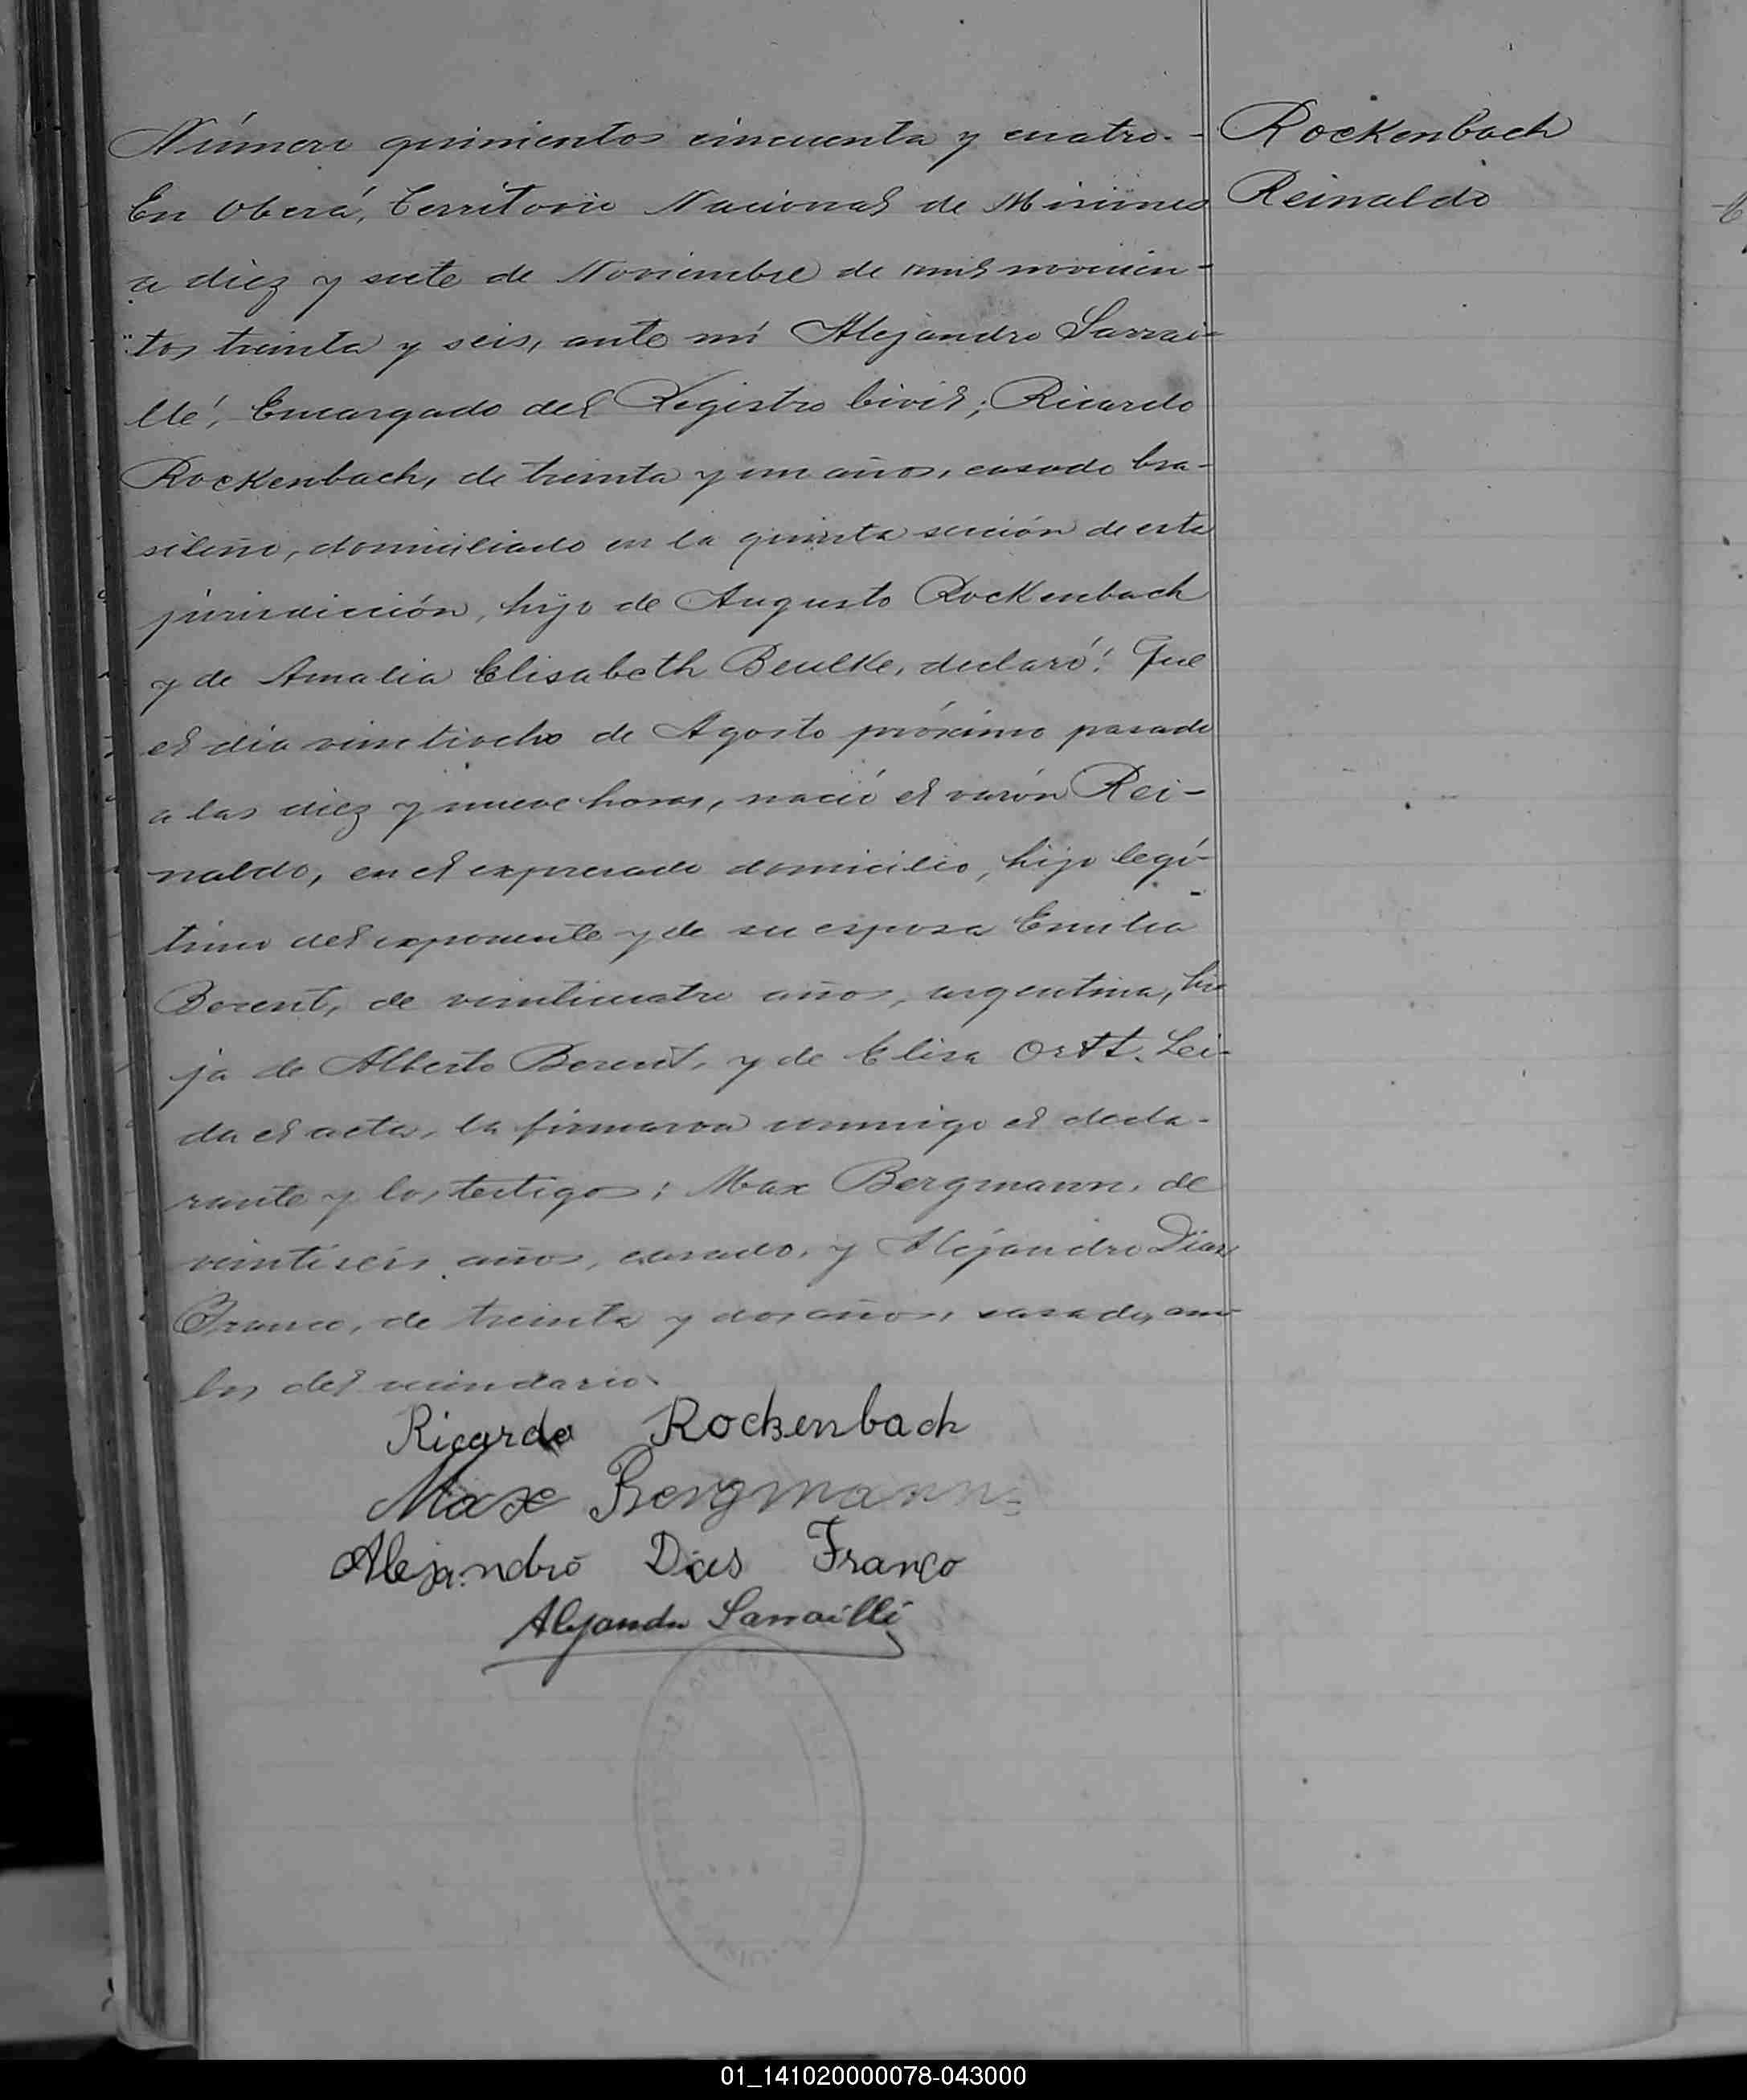 Número quinientos cincuenta y cuatro.-
Rockenbach
Reinaldo
En Oberá, Territorio Nacional de Misiones
a diez y siete de Noviembre de mil novecien-
tos treinta y seis, ante mí Alejandro Sarrai-
llé, Encargado del Registro Civil; Ricardo
Rockenbach, de treinta y un años, casado bra-
sileño, domiciliado en la quinta sección de esta
jurisdicción, hijo de Augusto Rockenbach
y de Amalia Elisabeth Beulke, declaró: Que
el día veintiocho de Agosto próximo pasado
a las diez y nueve horas, nació el varón Rei-
naldo, en el expresado domicilio, hijo legí-
timo del exponente y de su esposa Emilia
Berent, de veinticuatro años, argentina, hi
ja de Alberto Berent, y de Elisa Ortt. Lei-
da el acta, la firmaron conmigo el decla-
rante y los testigos; Max Bergmann, de
veintiseis años, casado, y Alejandro Dias
Franco, de treinta y dos años, casado, am-
bos del vecindario.
Ricardo Rockenbach
Max Bergmann
Alejandro Dias Franco
Alejandro Sarraillé
01_141020000078-043000